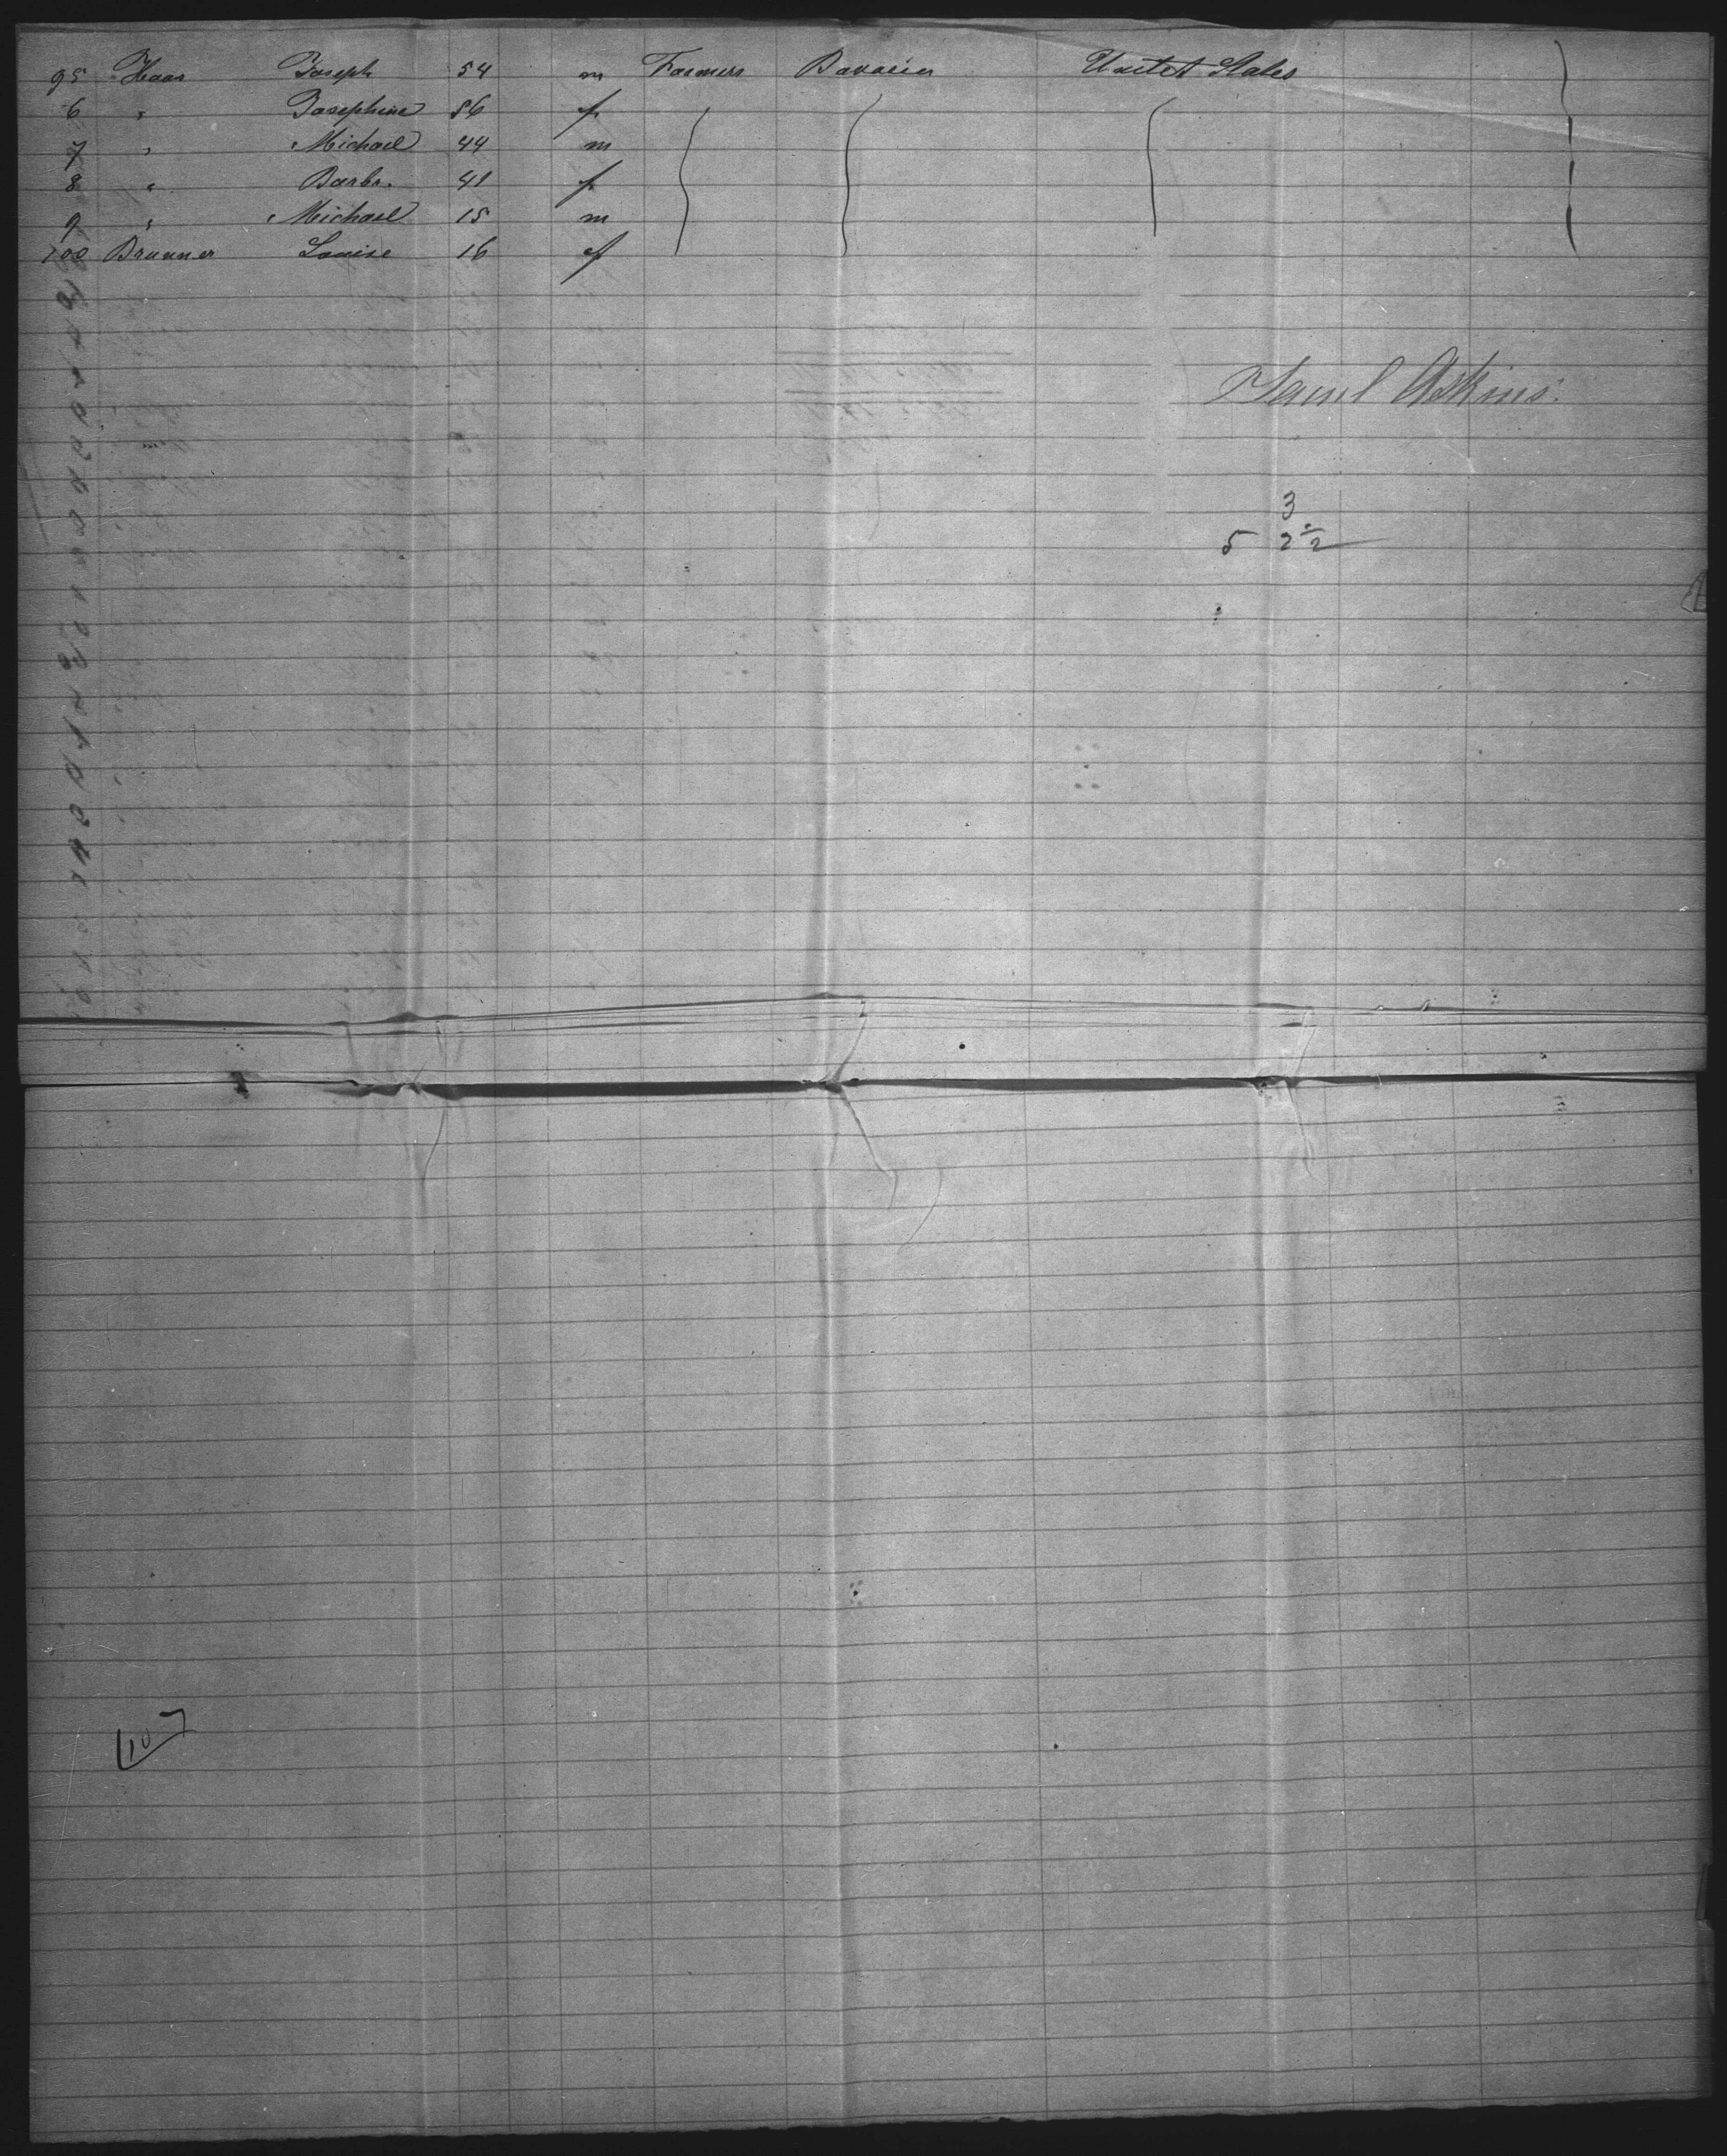 95 Haas Joseph 54 m Farmers Bavaria United States
6 " Josephine 56 f
7 " Michael 44 m
8 " Barbr. 41 f
9 " Michael 15 m
100 Brunner Louise 16 f
Saml Askins.
3
5 2 2
107